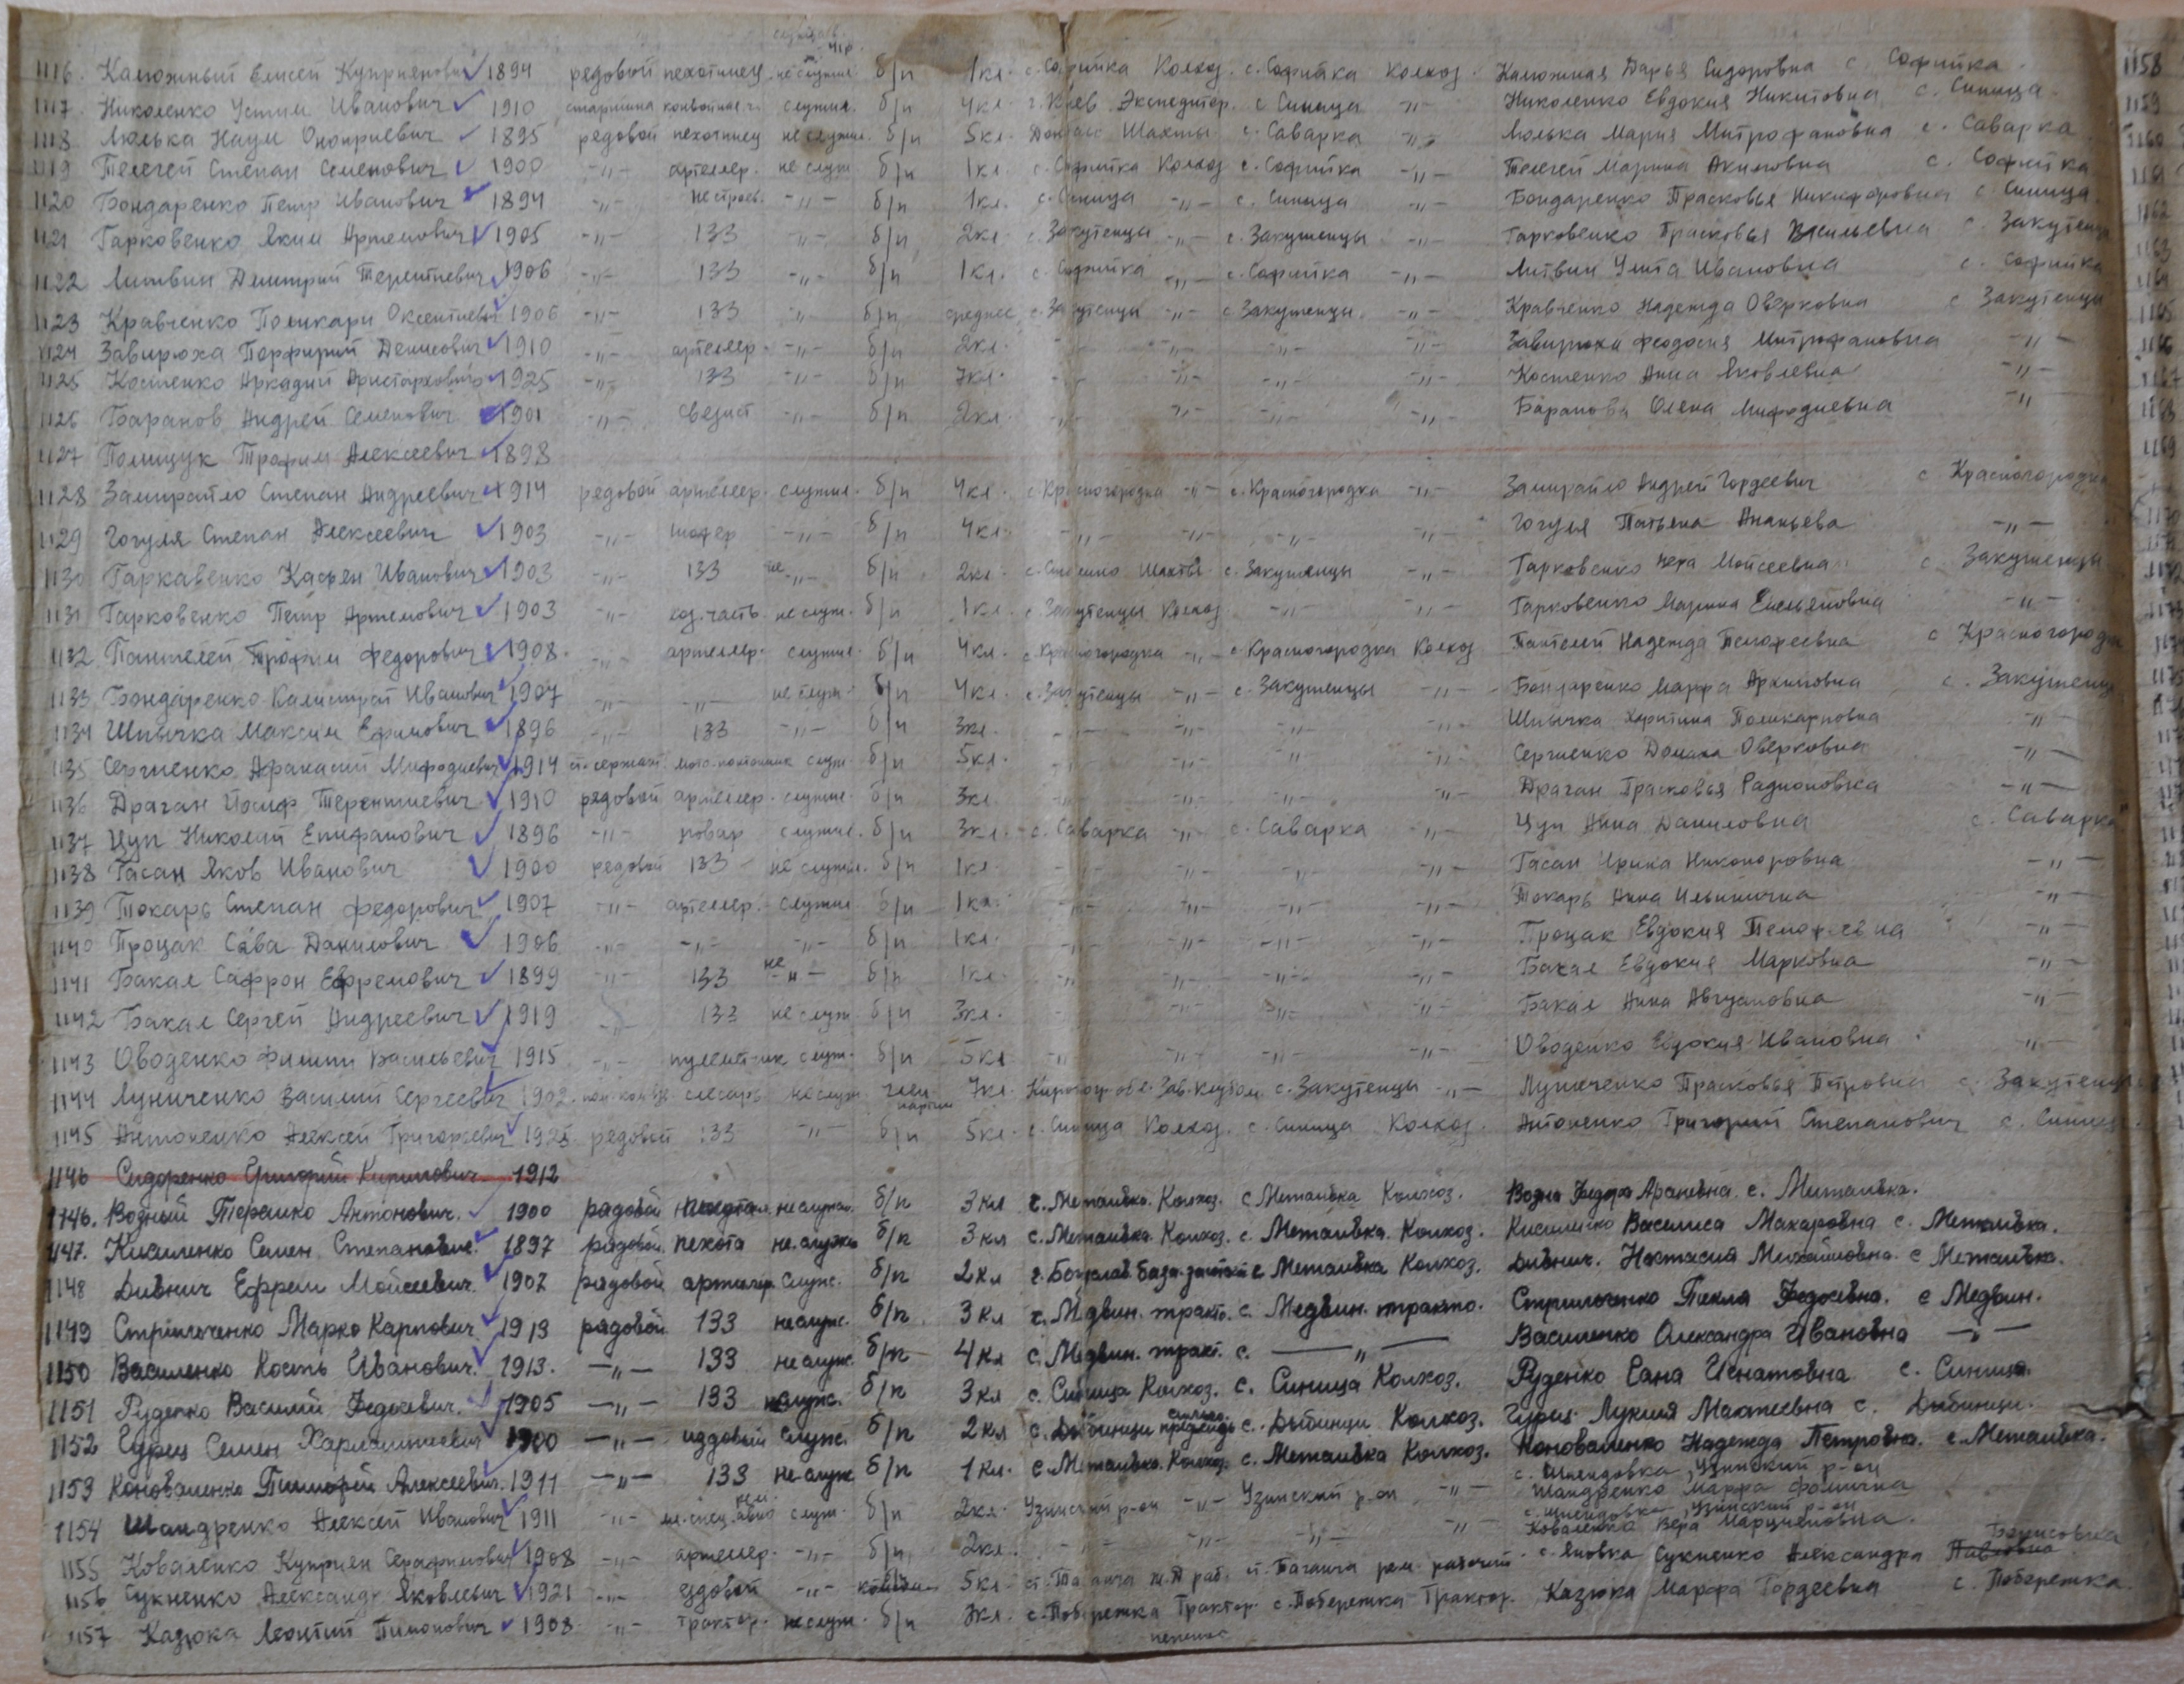 1116. Калюжный Елисей Куприянович 1894 редовой пехотинец не служил б/п 1кл. с. Софийка Колхоз. с. Софийка Колхоз. Калюжная Дарья Сидоровна с. Софийка
1117. Николенко Устим Иванович 1910 старшина служил. б/п 4кл. г. Киев Экспедитор. с. Синица -"- Николенко Евдокия Никитовна с. Синица
1118 Люлька Наум Оноприевич 1895 редовой пехотинец не служил. б/п 5кл. Донбасс Шахты с. Саварка -"- Люлька Мария Митрофановна с. Саварка
1119 Телегей Степан Семенович 1900 -"- артеллер. не служ б/п 1кл. с. Софийка Колхоз с. Софийка -"- Телегей Марина Акимовна с. Софийка
1120 Бондаренко Петр Иванович 1894 -"- нестроев. -"- б/п 1кл. с. Синица -"- с. Синица -"- Бондаренко Прасковья Никифоровна с. Синица
1121 Гарковенко Яким Артемович 1905 -"- 133 -"- б/п 2кл с. Закутенцы -"- с. Закутенцы -"- Гарковенко Прасковья Васильевна с. Закутенцы
1122 Литвин Дмитрий Терентиевич 1906 -"- 133 -"- б/п 1кл. с. Софийка -"- с. Софийка -"- Литвин Улита Ивановна с. Софийка
1123 Кравченко Поликарп Оксентиевич 1906 -"- 133 -"- б/п среднее с. Закутенцы -"- с. Закутенцы. -"- Кравченко Надежда Оверковна с. Закутенцы
1124 Завирюха Порфирий Денисович 1910 -"- артеллер. -"- б/п 2кл. -"- -"- -"- -"- Завирюха Феодосия Митрофановна -"-
1125 Костенко Аркадий Аристархович 1925 -"- 133 -"- б/п 7кл. -"- -"- -"- Костенко Анна Яковлевна -"-
1126 Баранов Андрей Семенович 1901 -"- связист -"- б/п 2кл. -"- -"- -"- -"- Баранова Олена Мифодиевна -"-
1127 Полищук Трофим Алексеевич 1898
1128 Замирайло Степан Андреевич 1914 редовой артеллер. служил. б/п 4кл. с. Красногородка -"- с. Красногородка -"- Замирайло Андрей Гордеевич с Красногородка
1129 Гогуля Степан Алексеевич 1903 -"- шофер -"- б/п 4кл. -"- -"- -"- -"- Гогуля Татьяна Ананьева -"-
1130 Гаркавенко Касьян Иванович 1903 -"- 133 не -"- б/п 2кл. Шахты с. Закутенцы -"- Гарковенко Вера Мойсеевна с Закутенцы
1131 Гарковенко Петр Артемович 1903 -"- хоз. часть не служ. б/п 1кл. с. Закутенцы Колхоз -"- -"- Гарковенко Марина Емельяновна -"-
1132 Пантелей Трофим Федорович 1908. -"- артеллер. служил. б/п 4кл. с. Красногородка -"- с. Красногородка Колхоз Пантелей Надежда Тимофеевна с Красногородка
1133 Бондаренко Калистрат Иванович 1907 -"- -"- не служ. б/п 4кл. с. Закутенцы -"- с. Закутенцы -"- Бондаренко Марфа Архиповна с. Закутенцы
1134 Шпычка Максим Ефимович 1896 -"- 133 -"- б/п 3кл. -"- -"- -"- -"- Шпычка Харитина Поликарповна -"-
1135 Сергиенко Афанасий Мифодиевич 1914 ст. сержант служ. б/п 5кл. -"- -"- -"- -"- Сергиенко Домаха Оверковна -"-
1136 Драган Йосиф Терентиевич 1910 редовой артеллер. служил. б/п 3кл. -"- -"- -"- Драган Прасковья Радионовна -"-
1137 Цуп Николай Епифанович 1896 -"- повар служил. б/п 3кл. с. Саварка -"- с. Саварка -"- Цуп Анна Даниловна с. Саварка
1138 Гасан Яков Иванович 1900 редовой 133 не служил. б/п 1кл. -"- -"- -"- -"- Гасан Ирина Никоноровна -"-
1139 Токарь Степан Федорович 1907 -"- артеллер. служил б/п 1кл. -"- -"- -"- -"- Токарь Анна Ильинична -"-
1140 Процак Сава Данилович 1906 -"- -"- -"- б/п 1кл. -"- -"- -"- -"- Процак Евдокия Тимофеевна -"-
1141 Бакал Сафрон Ефремович 1899 -"- 133 не -"- б/п 1кл. -"- -"- -"- -"- Бакал Евдокия Марковна -"-
1142 Бакал Сергей Андреевич 1919 -"- 133 не служ б/п 3кл. -"- -"- -"- Бакал Анна -"-
1143 Оводенко Филипп Васильевич 1915 -"- служ. б/п 5кл -"- -"- -"- -"- Оводенко Евдокия Ивановна -"-
1144 Луниченко Василий Сергеевич 1902. слесарь не служ член партии 7кл. с. Закутенцы -"- Луниченко Прасковья Петровна с. Закутенцы
1145 Антоненко Алексей Григорьевич 1925. редовой 133 -"- б/п 5кл. с. Синица Колхоз. с. Синица Колхоз. Антоненко Григорий Степанович с. Синица
1146 Сидоренко Григорий Кирилович 1912
1146. Водный Терешко Антонович. 1900 радовой пехота не служил. б/п 3кл с. Метаивка. Колхоз. с Метаивка Колхоз. Водна с. Метаивка.
1147. Кисиленко Семен Степанович. 1897 радовой. пехота не. служил б/п 3кл с. Метаивка. Колхоз. с. Метаивка. Колхоз. Кисиленко Василиса Макаровна с. Метаивка.
1148 Дивнич Ефрем Мойсеевич. 1907 радовой артилер служ. б/п 2кл г. Богуслав. база с Метаивка Колхоз. Дивнич. Настасия Михайловна. с Метаивка.
1149 Стрильченко Марко Карпович. 1913 радовой 133 не служ. б/п. 3кл с. Медвин. тракто. с. Медвин. тракто. Стрильченко Текля Федосевна. с Медвин.
1150 Василенко Кость Иванович. 1913. -"- 133 не служ. б/п 4кл с. Медвин. тракт. с. -"- Василенко Олександра Ивановна -"-
1151 Руденко Василий Федосевич. 1905 -"- 133 не служ. б/п 3кл с. Синица Колхоз. с. Синица Колхоз. Руденко Гана Игнатовна с. Синица.
1152 Гурец Семен 1900 -"- издовый служ. б/п 2кл с. Дыбинци с. Дыбинци Колхоз. Гурец. Лукия Матеевна с. Дыбинци.
1153 Коноваленко Тимофей Алексеевич. 1911 -"- 133 не служ б/п 1кл. с. Метаивка. Колхоз. с. Метаивка Колхоз. Коноваленко Надежда Петровна. с. Метаивка.
1154 Шандренко Алексей Иванович 1911 -"- служ. б/п 2кл. Узинский р-он -"- Узинский р-он -"- Шандренко Марфа Фомична Узинский р-он
1155 Коваленко Куприян Серафимович 1908 -"- артеллер. -"- б/п 2кл. -"- -"- -"- -"- Коваленко Вера Узинский р-он
1156 Сукненко Александр Яковлевич 1921 -"- ездовой -"- 5кл. ст. Таганча ж.д раб. ст. Таганча рем. рабочий с. Яновка Сукненко Александра Павловна Борисовна
1157 Казюка Леонтий Тимонович 1908. -"- трактор. не служ. б/п 7кл. с. Побережка Трактор. с. Побережка Трактор. Казюка Марфа Гордеевна с. Побережка.